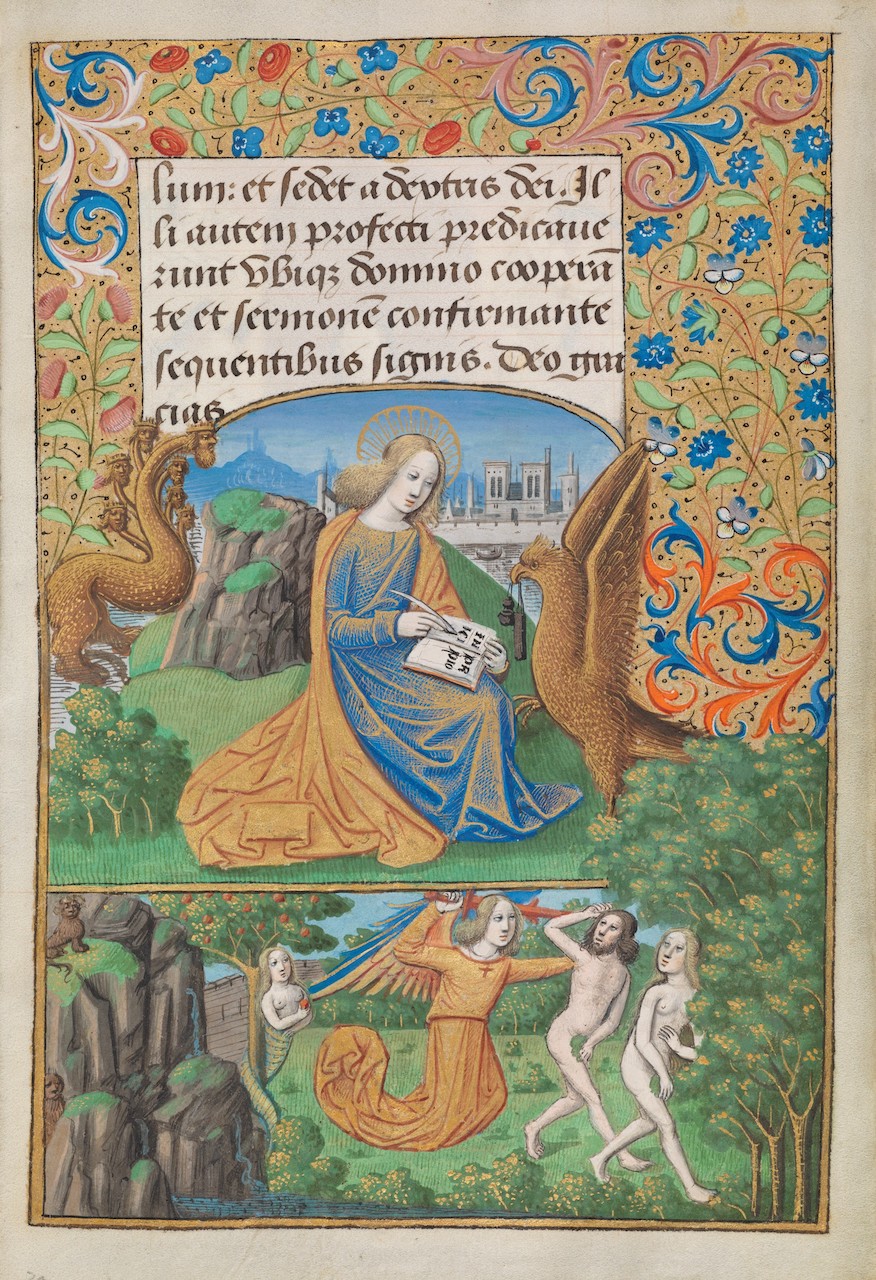 lum: et sedet a dextris dei. Il
li autem profecti predicaue
runt vbiqꝫ domino cooperā
te et sermonē confirmante
sequentibus signis. Deo gra
cias